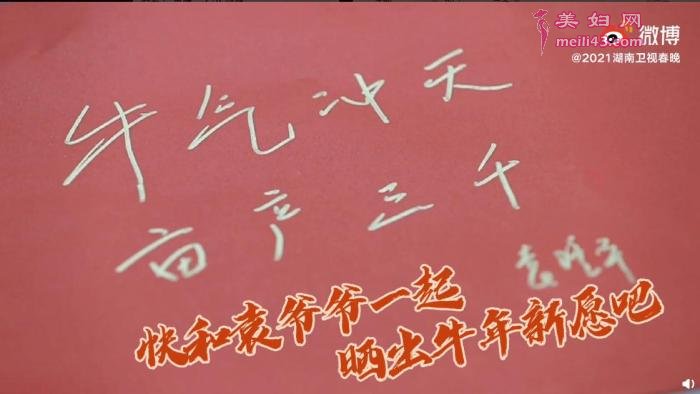 美妇网
meili43.com
微博
@2021湖南卫视春晚
牛气冲天
亩产三千
袁隆平
快和袁爷爷一起
晒出牛年新愿吧